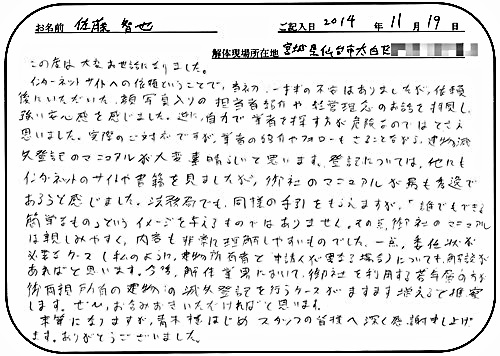 お名前 佐藤 智也 ご記入日 2014年 11月 19日
解体現場所在地 宮城県仙台市太白区
この度は大変お世話になりました。
インターネットサイトへの依頼ということで、当初、一抹の不安はありましたが、依頼
後にいただいた、顔写真入りの担当者紹介や経営理念のお話を拝見し、
強い安心感を感じました。逆に、自力で業者を探す方が危険なのではとさえ
思いました。実際のご対応ですが、業者の紹介やフォローもさることながら、建物滅
失登記のマニュアルが大変素晴らしいと思います。登記については、他にも
インターネットのサイトや書籍を見ましたが、御社のマニュアルが最も秀逸で
あろうと感じました。法務局でも、同様の手引をもらえますが、「誰でもできる
簡単なもの」というイメージを与えるものではありません。その点、御社のマニュアル
は親しみやすく、内容も非常に理解しやすいものでした。一点、委任状が
必要なケース(私のように、建物所有者と申請人が異なる場合)についても、解説が
あればと思います。今後、解体業界において、御社を利用する若年層の方が
両親所有の建物の滅失登記を行うケースがますます増えると推察
します。ぜひ、お含みおきいただければと思います。
末筆になりますが、青木様はじめ スタッフの皆様へ深く感謝申し上げ
ます。ありがとうございました。